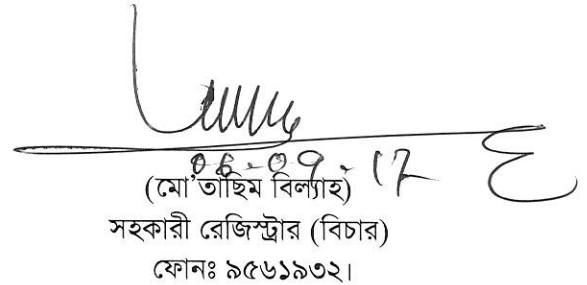 06-09-17
(মো'তাছিম বিল্যাহ)
সহকারী রেজিস্ট্রার (বিচার)
ফোনঃ ৯৫৬১৯৩২।